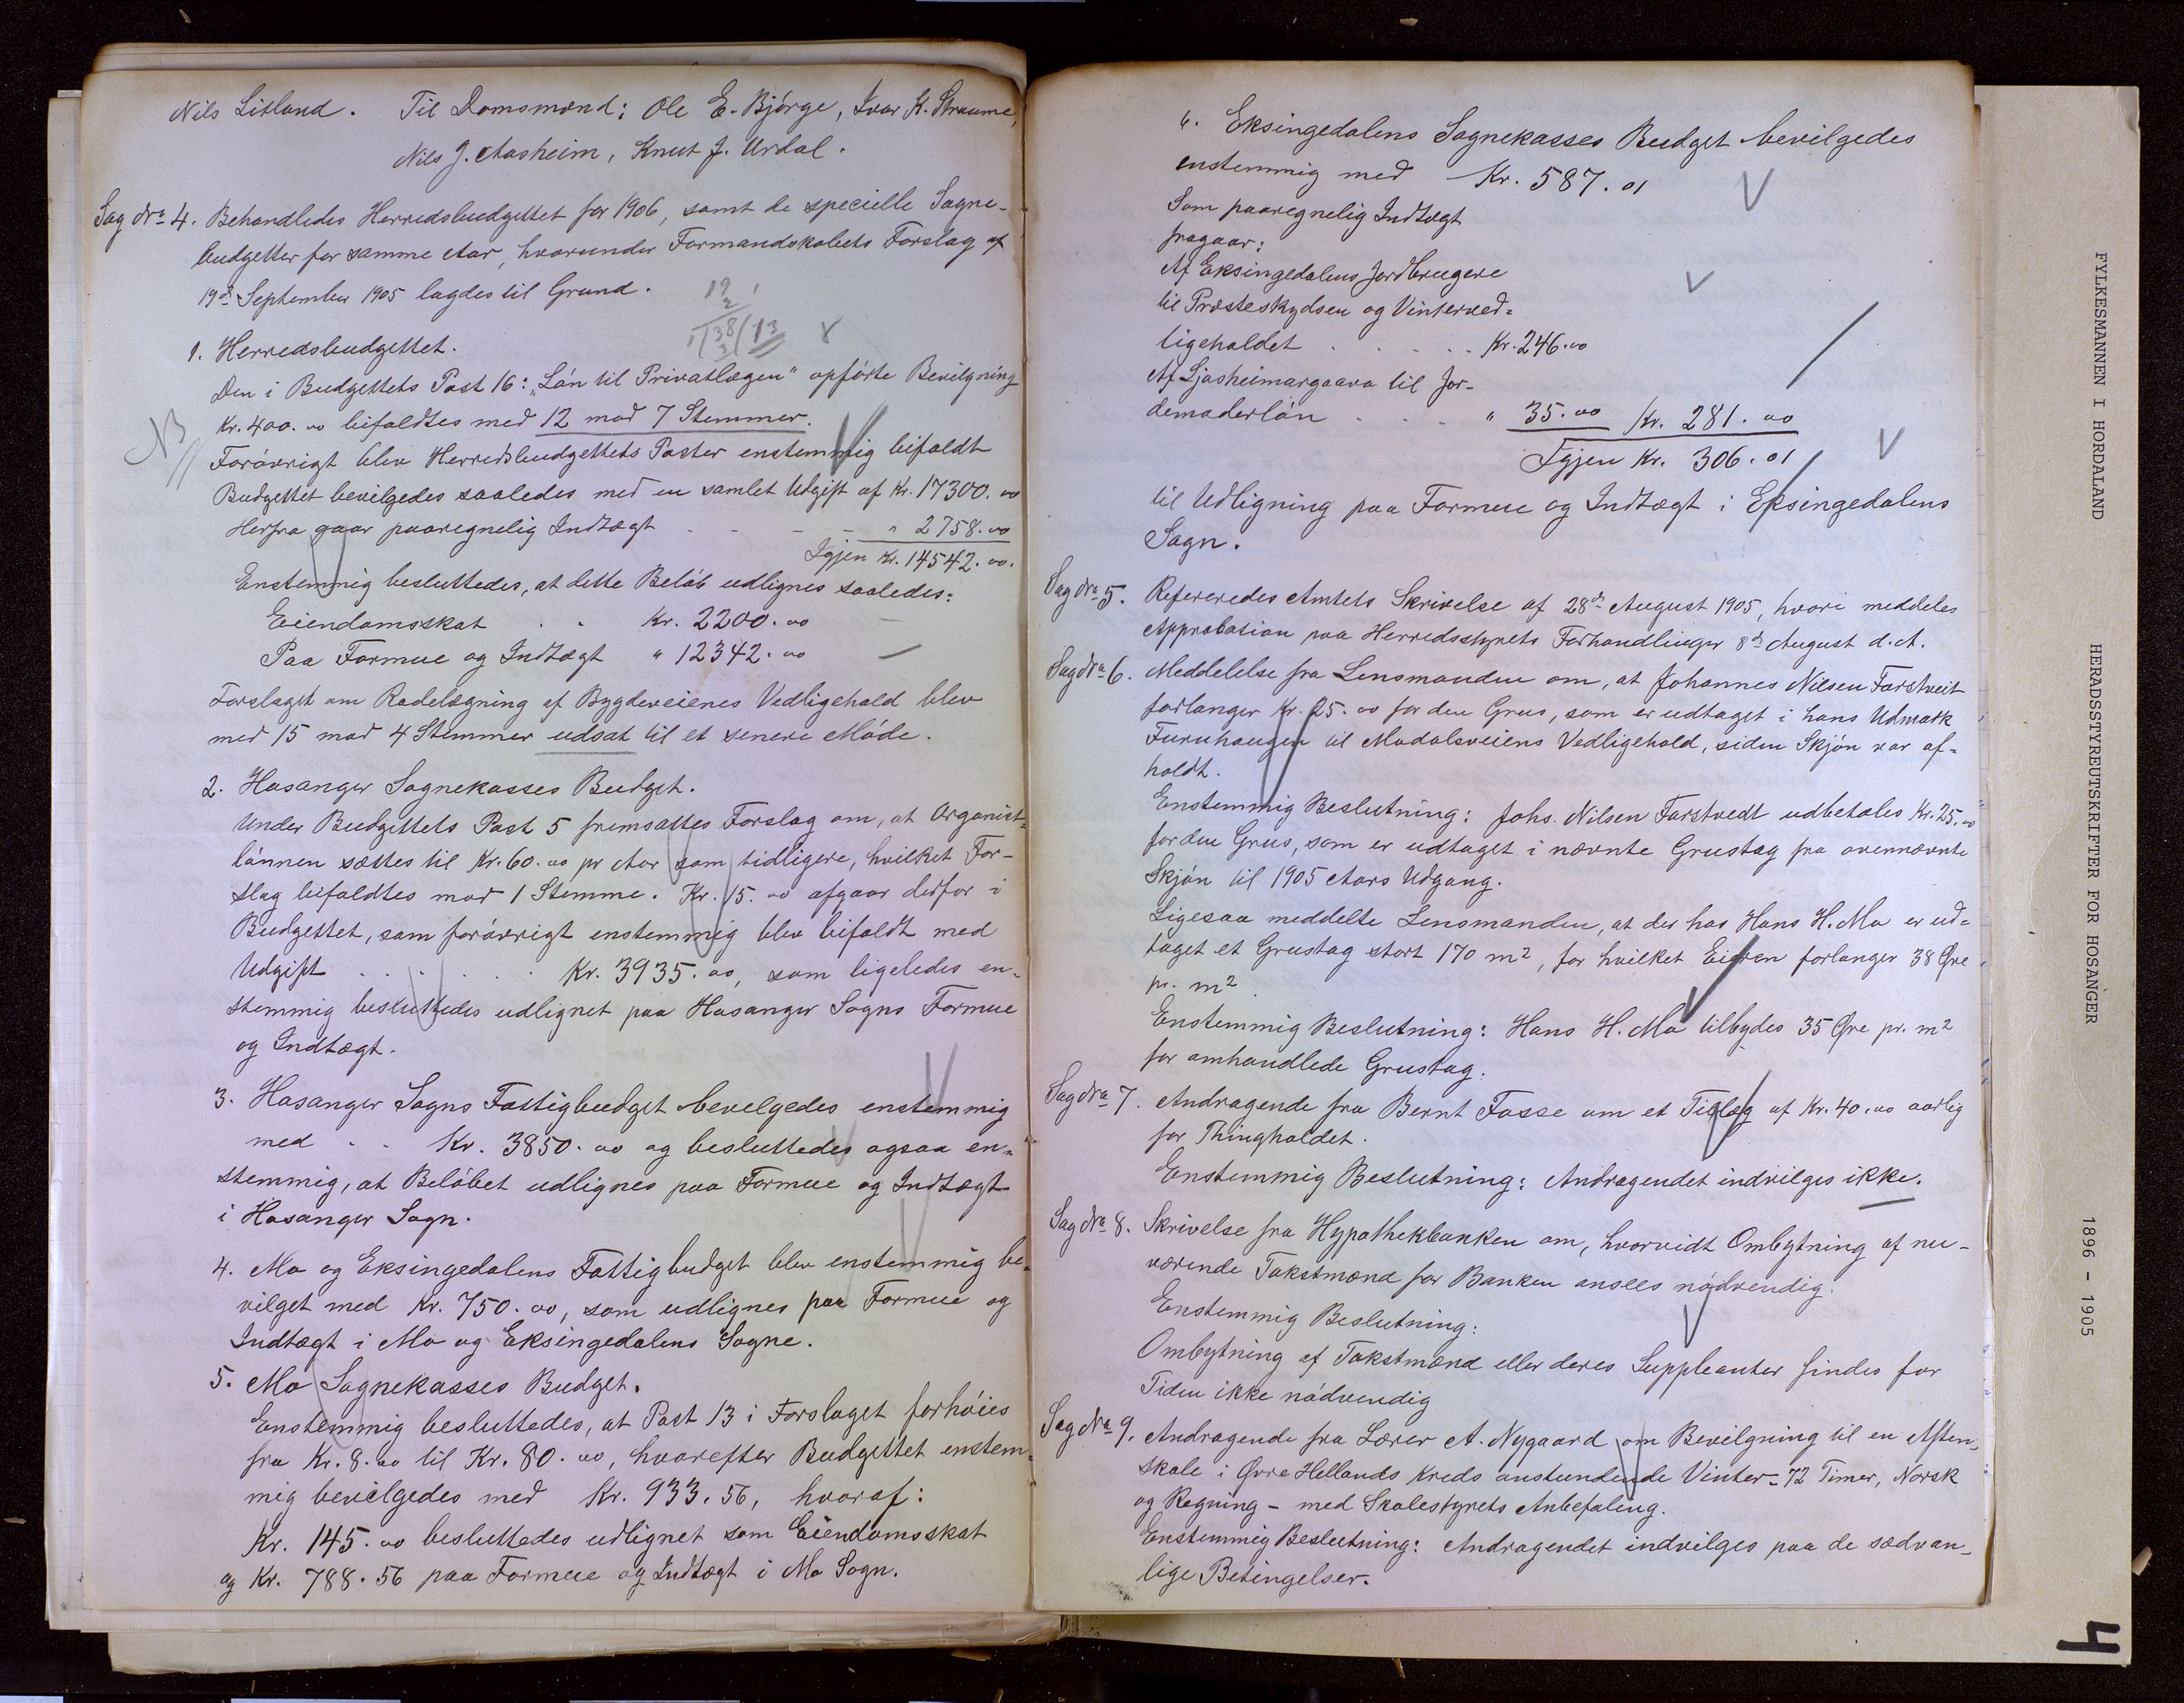 Nils Litland. Til Domsmænd: Ole E. Bjórge, Ivar K. Straume,
Nils J. Aasheim, Knut J. Urdal.
Sag No 4. Behandledes Herredsbudgettet for 1906, samt de specielle Sogne-
budgetter for samme Aar, hvorunder Formandskabets Forslag af
19de September 1905 lagdes til Grund.
1. Herredsbudgettet.
Den i Budgettets Post 16: "Lán til Privatlægen" opfórte Bevilgning
Kr. 400.00 bifaldtes med 12 mod 7 Stemmer.
NB
Foróvrigt blev Herredsbudgettets Poster enstemmig bifaldt
Budgettet bevilgedes saaledes med en samlet Udgift af Kr. 17300.00
Herfra gaar paaregnelig Indtægt - - - " 2758.00
Igjen Kr. 14542.00.
Enstemmig besluttedes, at dette Belób udlignes saaledes:
Eiendomsskat . . Kr. 2200.00
Paa Formue og Indtægt " 12342.00
Forslaget om Rodelægning af Bygdeveienes Vedligehold blev
med 15 mod 4 Stemmer udsat til et senere Móde.
2. Hosanger Sognekasses Budget.
Under Budgettets Post 5 fremsattes Forslag om, at Organist=
lónnen sættes til Kr. 60.00 pr Aar som tidligere, hvilket For-
slag bifaldtes mod 1 Stemme. Kr. 15.00 afgaar derfor i
Budgettet, som foróvrigt enstemmig blev bifaldt med
Udgift . . . . . . Kr. 3935.00, som ligeledes en-
stemmig besluttedes udlignet paa Hosanger Sogns Formue
og Indtægt.
3. Hosanger Sogns Fattigbudget bevelgedes enstemmig
med . . Kr. 3850.00 og besluttedes ogsaa en=
stemmig, at Belóbet udlignes paa Formue og Indtægt
i Hosanger Sogn.
4. Mo og Eksingedalens Fattigbudget blev enstemmig be-
vilget med Kr. 750.00, som udlignes paa Formue og
Indtægt i Mo og Eksingedalens Sogne.
5. Mo Sognekasses Budget.
Enstemmig besluttedes, at Post 13 i Forslaget forhóies
fra Kr. 8.00 til Kr. 80.00, hvorefter Budgettet enstem=
mig bevilgedes med Kr. 933.56, hvoraf:
Kr. 145.00 besluttedes udlignet som Eiendomsskat
og Kr. 788.56 paa Formue og Indtægt i Mo Sogn.
6. Eksingedalens Sognekasses Budget bevilgedes
enstemmig med Kr. 587.01
Som paaregnelig Indtægt
fragaar:
Af Eksingedalens Jordbrugere
til Præsteskydsen og Vinterved=
ligeholdet . . . . . Kr. 246.00
Af Ljosheimargaava til Jor-
demoderlón . . . . " 35.00 Kr. 281.00
Igjen Kr. 306.01
til Udligning paa Formue og Indtægt i Eksingedalens
Sogn.
Sag No 5. Refereredes Amtets Skrivelse af 28de August 1905, hvori meddeles
Approbation paa Herredsstyrets Forhandlinger 8de August d.A.
Sag No 6. Meddelelse fra Lensmanden om, at Johannes Nilsen Farstveit
forlanger Kr. 25.00 for den Grus, som er udtaget i hans Udmark
Furuhaugen til Modalsveiens Vedligehold, siden Skjón var af=
holdt.
Enstemmig Beslutning: Johs. Nilsen Farstvedt udbetales Kr. 25.00
for den Grus, som er udtaget i nævnte Grustag fra ovennævnte
Skjón til 1905 Aars Udgang.
Ligesaa meddelte Lensmanden, at der hos Hans H. Mo er ud=
taget et Grustag stort 170 m2, for hvilket Eieren forlanger 38 Øre
pr. m2
Enstemmig Beslutning: Hans H. Mo tilbydes 35 Øre pr. m2
for omhandlede Grustag.
Sag No 7. Andragende fra Bernt Fosse om et Tillæg af Kr. 40.00 aarlig
for Thingholdet.
Enstemmig Beslutning: Andragendet indvilges ikke.
Sag No 8. Skrivelse fra Hypothekbanken om, hvorvidt Ombytning af nu-
værende Takstmænd for Banken ansees nódvendig.
Enstemmig Beslutning:
Ombytning af Takstmænd eller deres Suppleanter findes for
Tiden ikke nódvendig
Sag No 9. Andragende fra Lærer A. Nygaard om Bevilgning til en Aften-
skole i Øvre Hellands Kreds anstundende Vinter - 72 Timer, Norsk
og Regning - med Skolestyrets Anbefaling.
Enstemmig Beslutning: Andragendet indvilges paa de sædvan-
lige Betingelser.
FYLKESMANNEN I HORDALAND HERADSSTYREUTSKRIFTER FOR HOSANGER 1896 - 1905
4